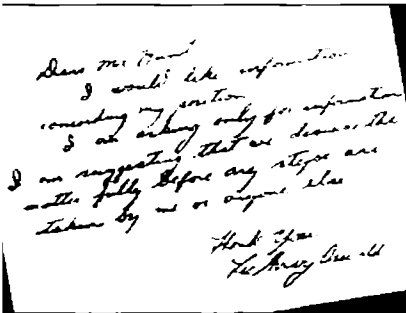 Dear Mr. Hunt
I would like information
concerding my position
I am asking only for information
I am suggesting that we discuss the
matter fully before any steps are
taken by me or anyone else
Thank You.
Lee Harvey Oswald